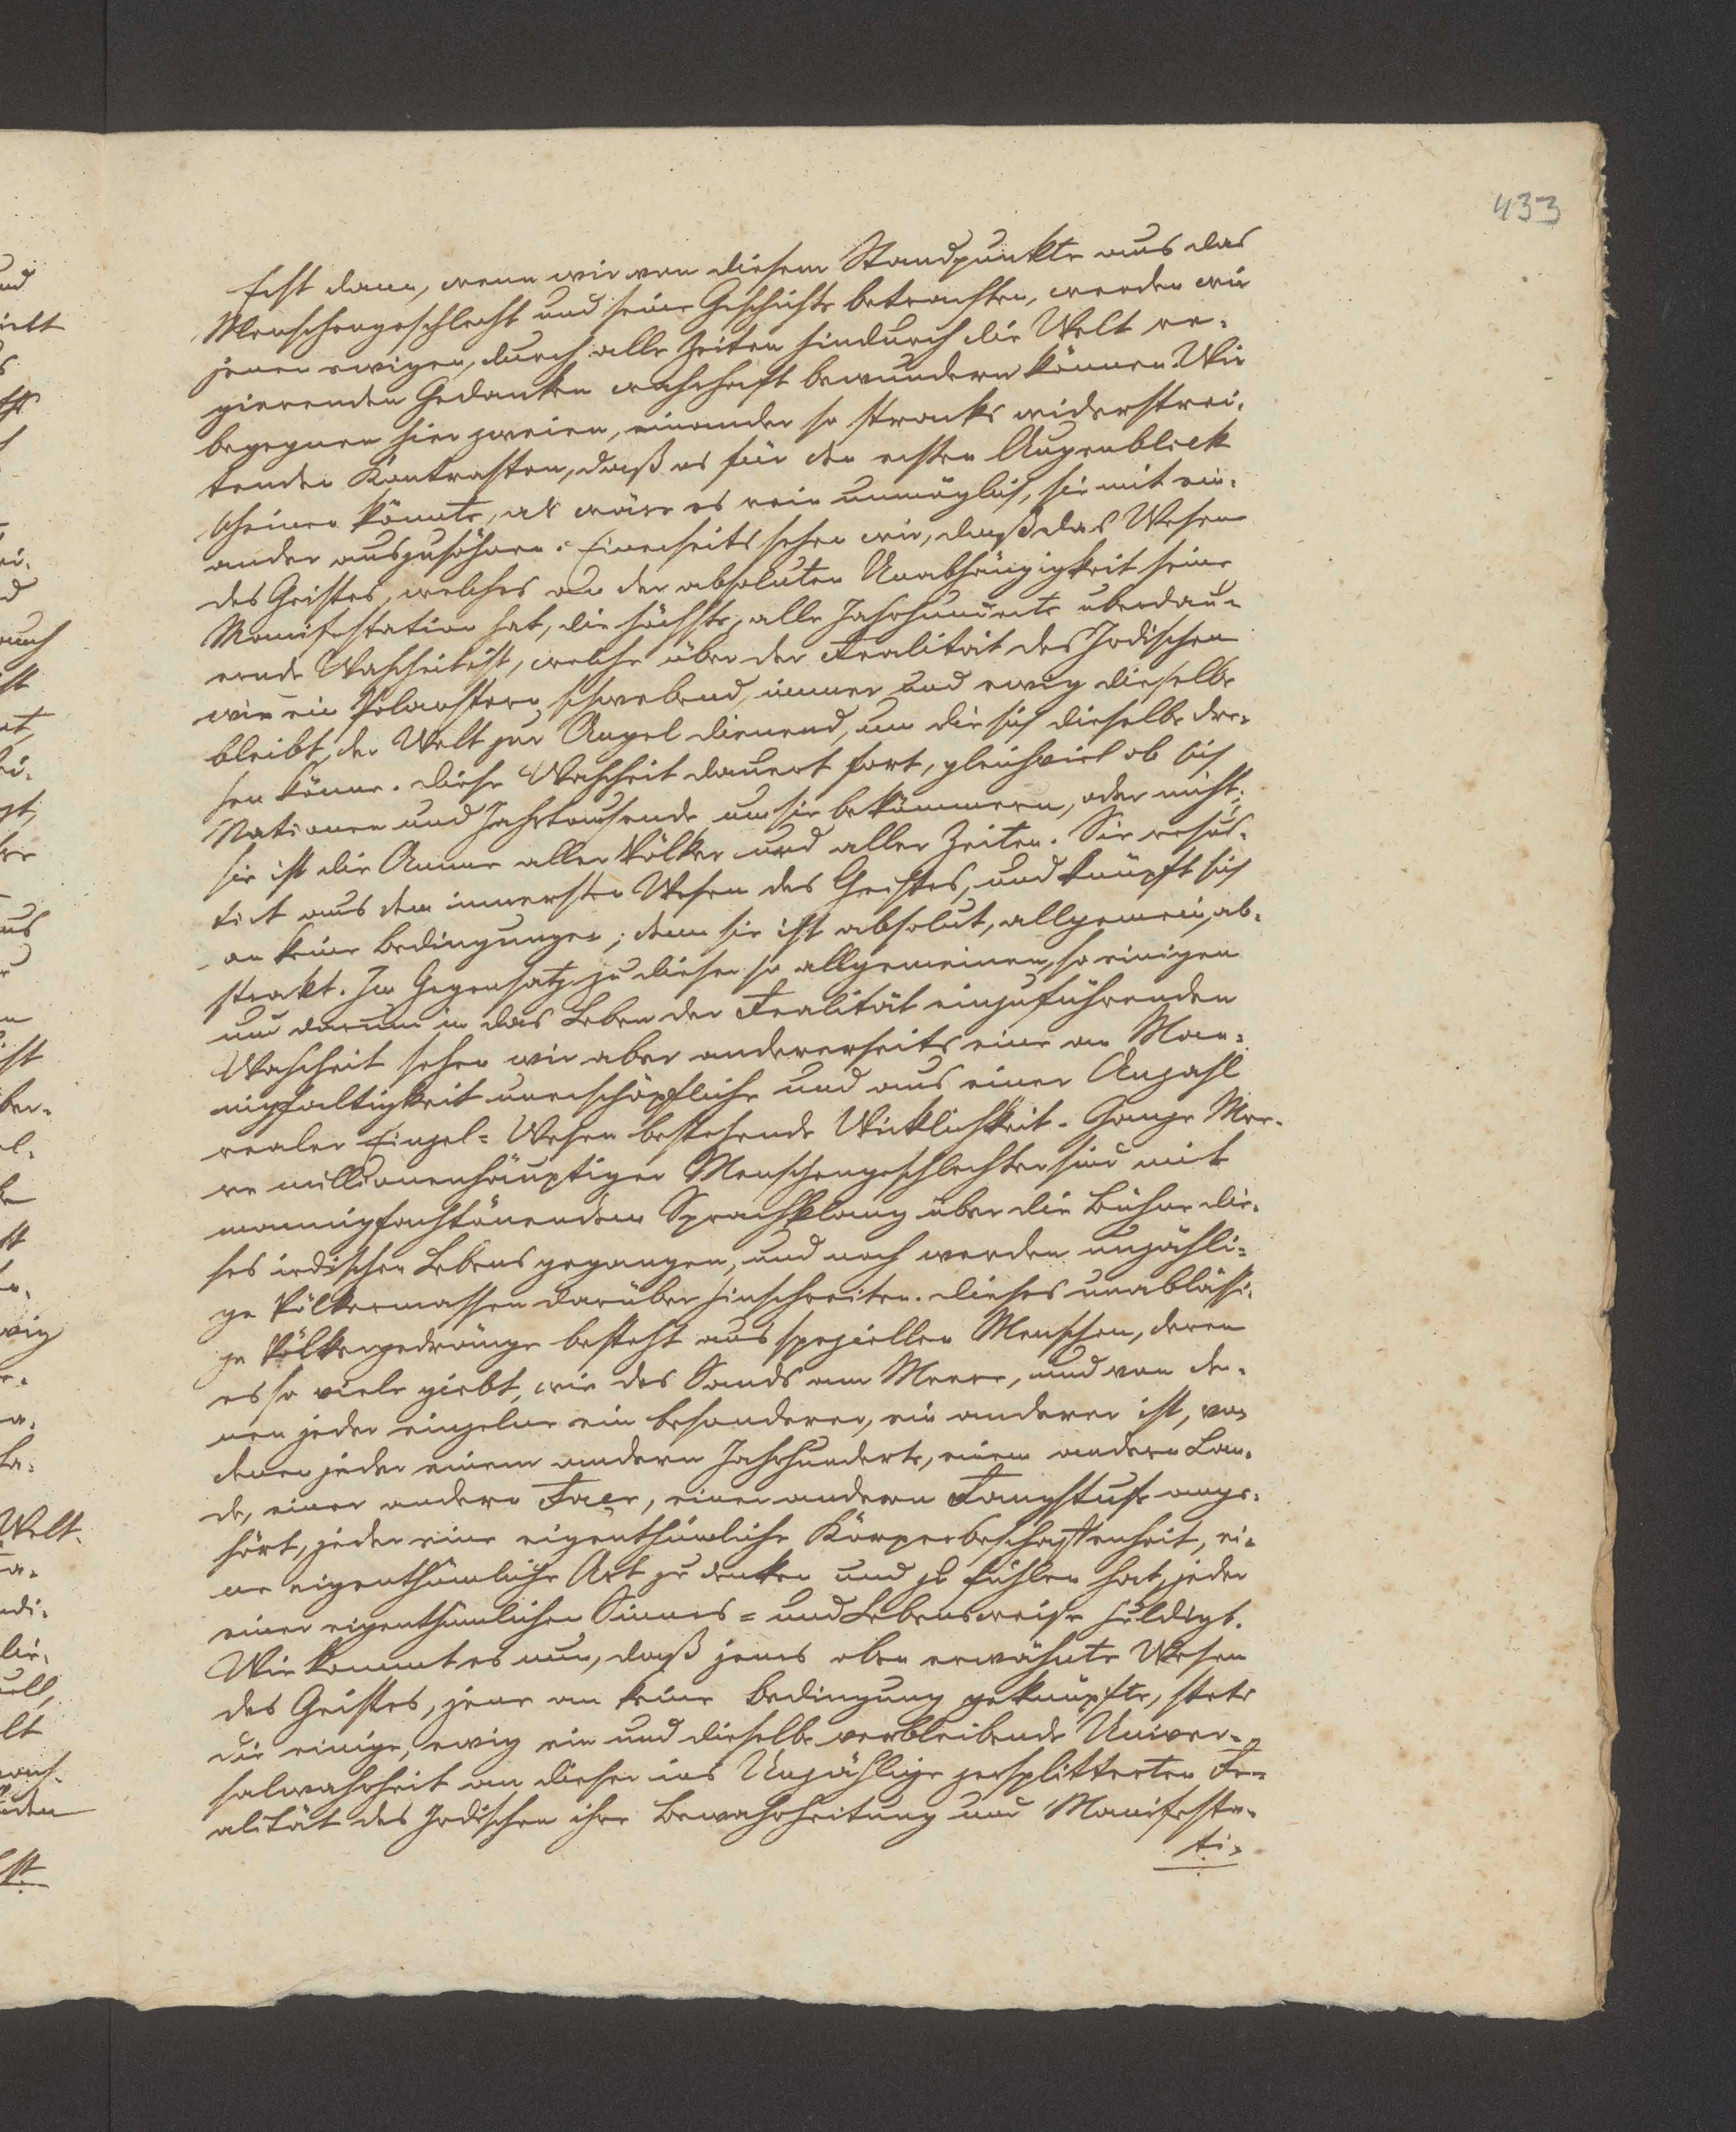 433
Erst dann, wenn wir von diesem Standpunkte aus das
Menschengeschlecht und seine Geschichte betrachten, werden wir
jenen ewigen, durch alle Zeiten hindurch die Welt re-
gierenden Gedanken wahrhaft bewundern können. Wir
begegnen hier zweien, einander so stracks widerstrei-
tenden Kontrasten, daß es für den ersten Augenblick
scheinen könnte, als wäre es rein unmöglich, sie mit ein-
ander auszusöhnen. Einerseits sehen wir, daß das Wesen
des Geistes, welches an der absoluten Unabhängigkeit seine
Manifestation hat, die höchste, alle Jahrhunderte überdau-
ernde Wahrheit ist, welche über der Realität des Irdischen
wie ein Polarstern schwebend, immer und ewig dieselbe
bleibt, der Welt zur Angel dienend, um die sich dieselbe dre-
hen könne. Diese Wahrheit dauert fort, gleichviel ob sich
Nationen und Jahrtausende um sie bekümmern, oder nicht;
sie ist die Amme aller Völker und aller Zeiten. Sie resul-
tirt aus dem innersten Wesen des Geistes, und knüpft sich
an keine Bedingungen; denn sie ist absolut, allgemein, ab-
strakt. Im Gegensatz zu dieser so allgemeinen, so einigen
und darum in das Leben der Realität einzuführenden
Wahrheit sehen wir aber andererseits eine an Man-
nigfaltigkeit unerschöpfliche und aus einer Anzahl
realer Einzel-Wesen bestehende Wirklichkeit. Ganze Mee-
re millionenhäuptiger Menschengeschlechter sind mit
mannigfachtönendem Sprachklang über die Bühne die-
ses irdischen Lebens gegangen, und noch werden unzähli-
ge Völkermassen darüber hinschreiten. Dieses unablässi-
ge Völkergedränge besteht aus speziellen Menschen, deren
es so viele giebt, wie des Sands am Meere, und von de-
nen jeder einzelne ein besonderer, ein anderer ist, von
denen jeder einem andern Jahrhunderte, einem andern Lan-
de, einer andern Race, einer andern Rangstufe ange-
hört, jeder eine eigenthümliche Körperbeschaffenheit, ei-
ne eigenthümliche Art zu denken und zu fühlen hat, jeder
einer eigenthümlichen Sinnes- und Lebensweise huldigt.
Wie kommt es nun, daß jenes oben erwähnte Wesen
des Geistes, jene an keine Bedingung geknüpfte, stets
die einige, ewig ein und dieselbe verbleibende Univer-
salwahrheit an dieser ins Unzählige zersplitterten Re-
alität des Irdischen ihre Bewahrheitung und Manifesta-
ti-